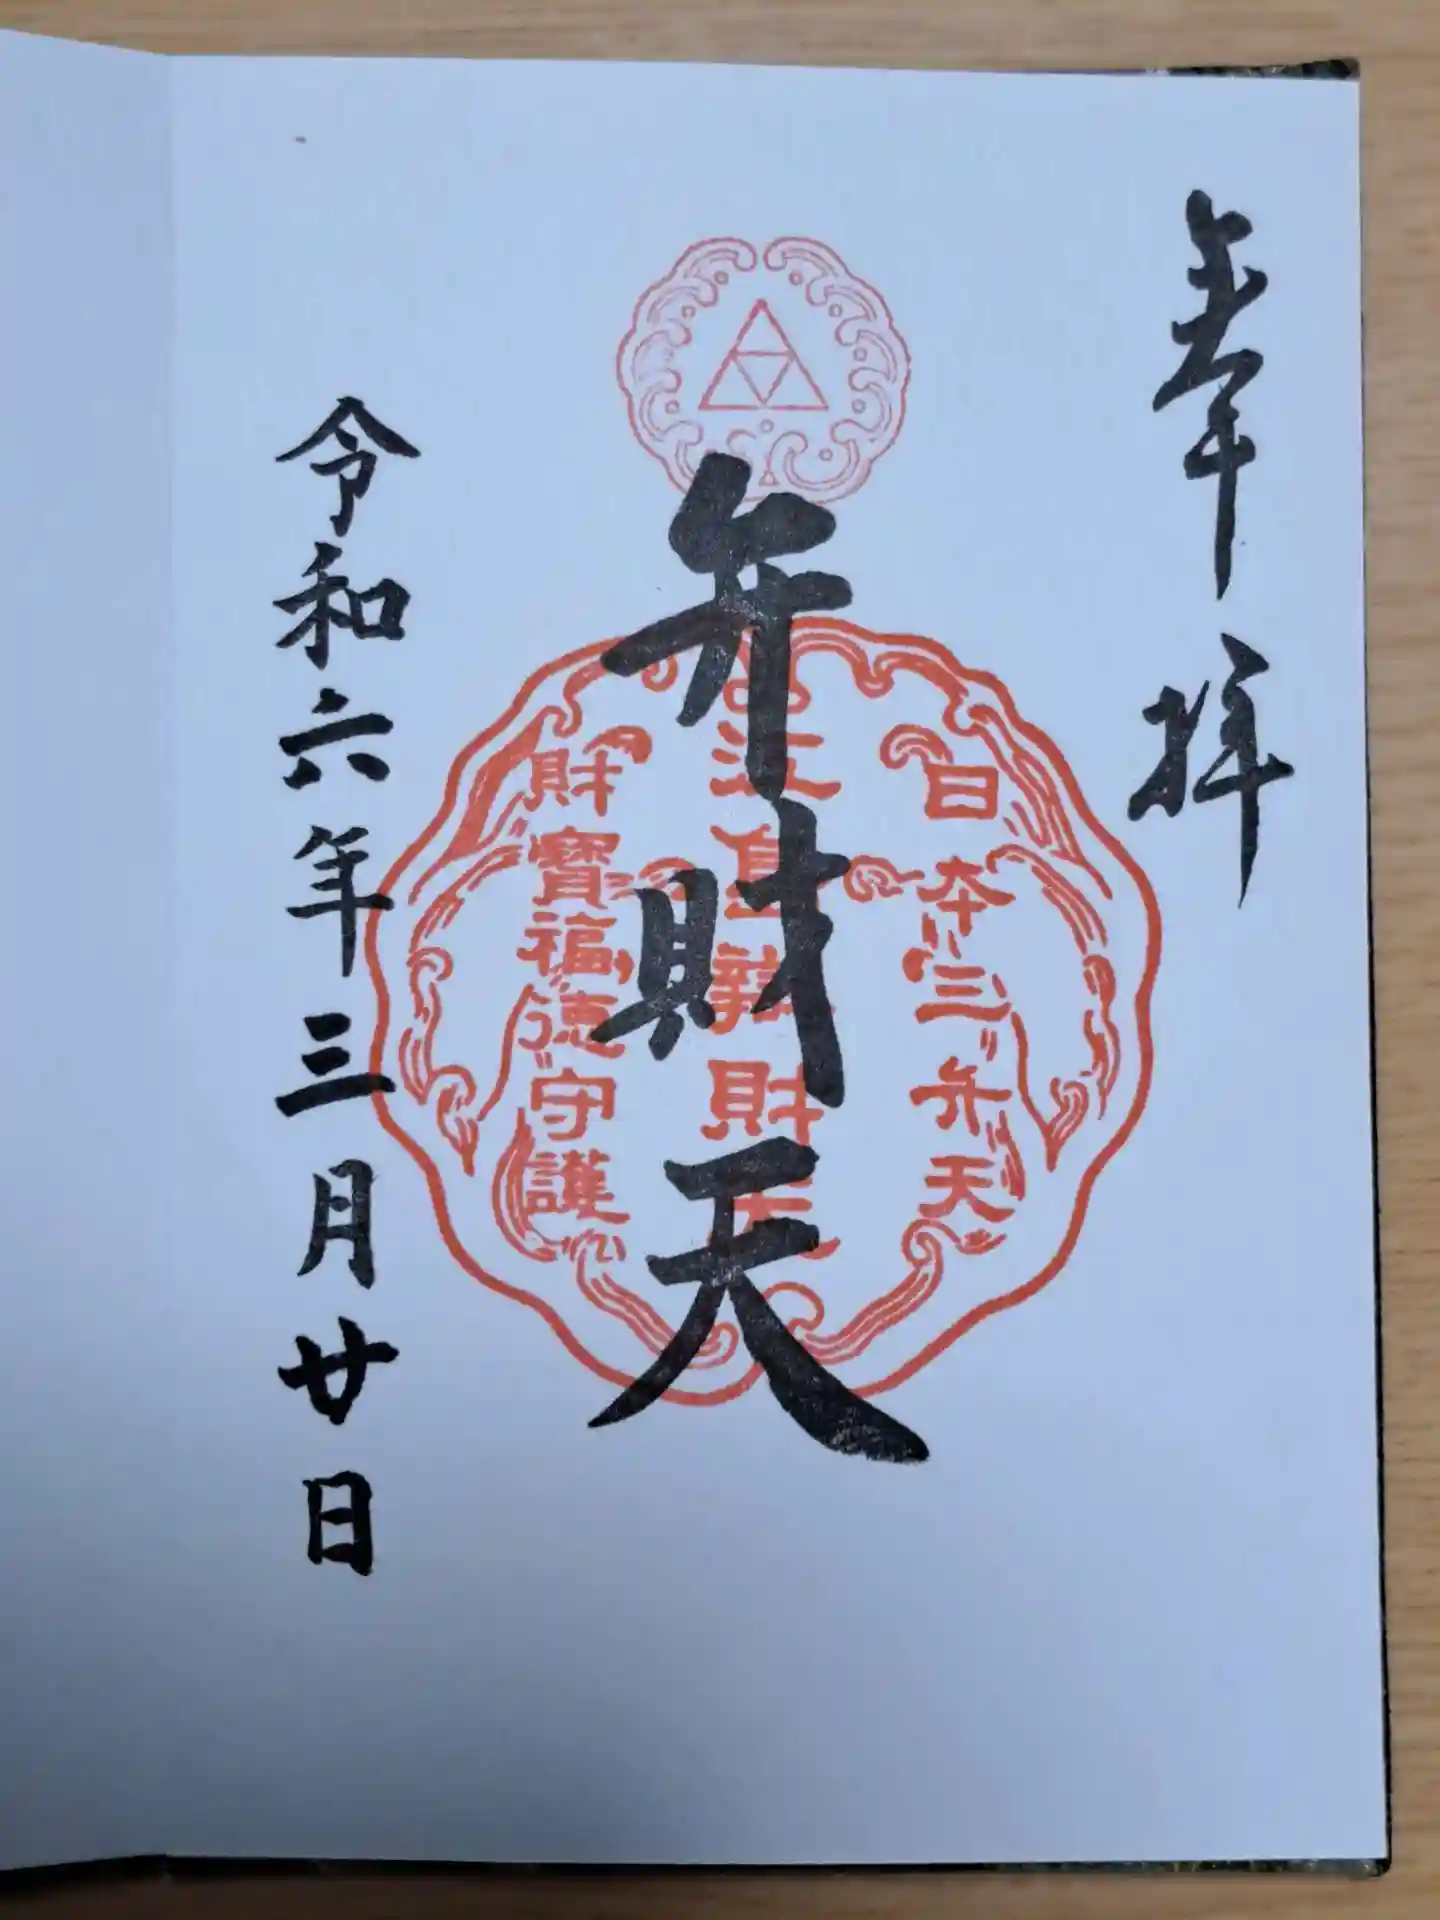 奉拝
弁財天
日本三弁天
江島辨財天
財寶福徳守護
令和六年三月廿日